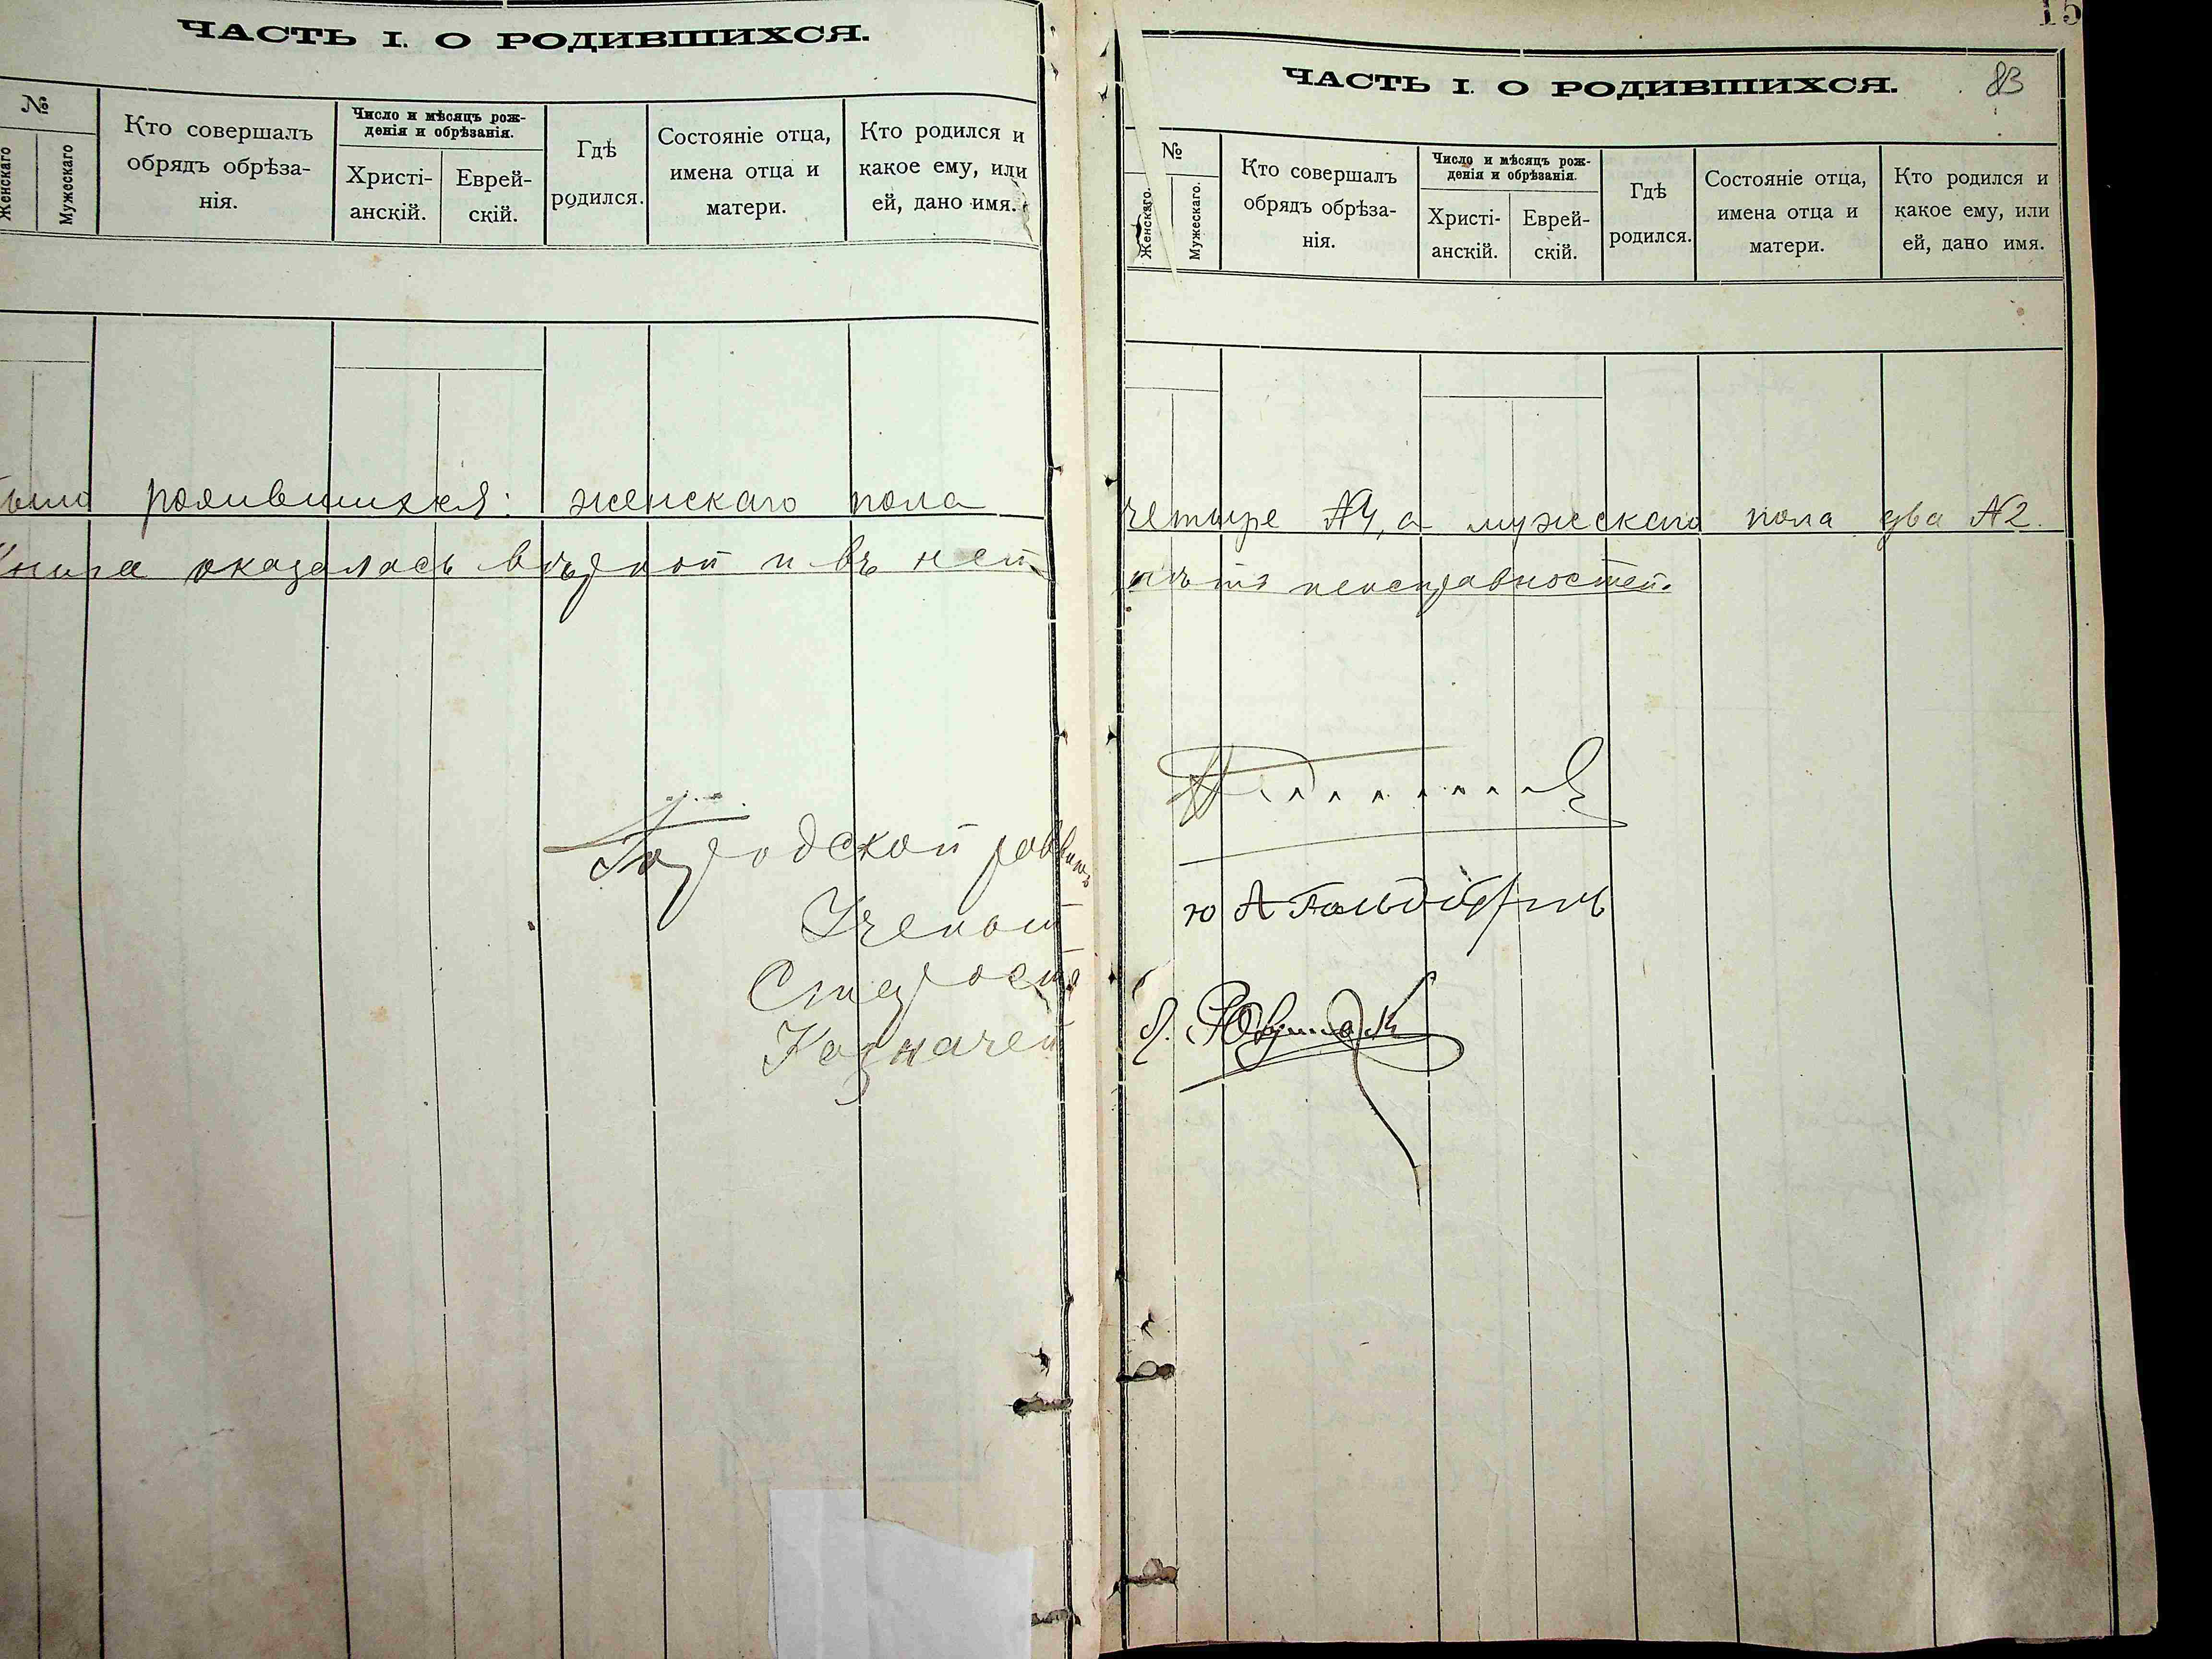 ЧАСТЬ I. О РОДИВШИХСЯ.
№
Женскаго
Мужескаго
Кто совершалъ
обрядъ обрѣза-
нія.
Число и мѣсяцъ рож-
денія и обрѣзанія.
Христі-
анскій.
Еврей-
скій.
Гдѣ
родился.
Состояніе отца,
имена отца и
матери.
Кто родился и
какое ему, или
ей, дано имя.
родившихся: женскаго пола
оказалась вѣрной и въ ней
Городской раввинъ
Ученый
Староста
Казначей
15
83
ЧАСТЬ I. О РОДИВШИХСЯ.
№
Женскаго.
Мужескаго.
Кто совершалъ
обрядъ обрѣза-
нія.
Число и мѣсяцъ рож-
денія и обрѣзанія.
Христі-
анскій.
Еврей-
скій.
Гдѣ
родился.
Состояніе отца,
имена отца и
матери.
Кто родился и
какое ему, или
ей, дано имя.
четыре №4, а мужскаго пола два №2.
нѣтъ неисправностей.